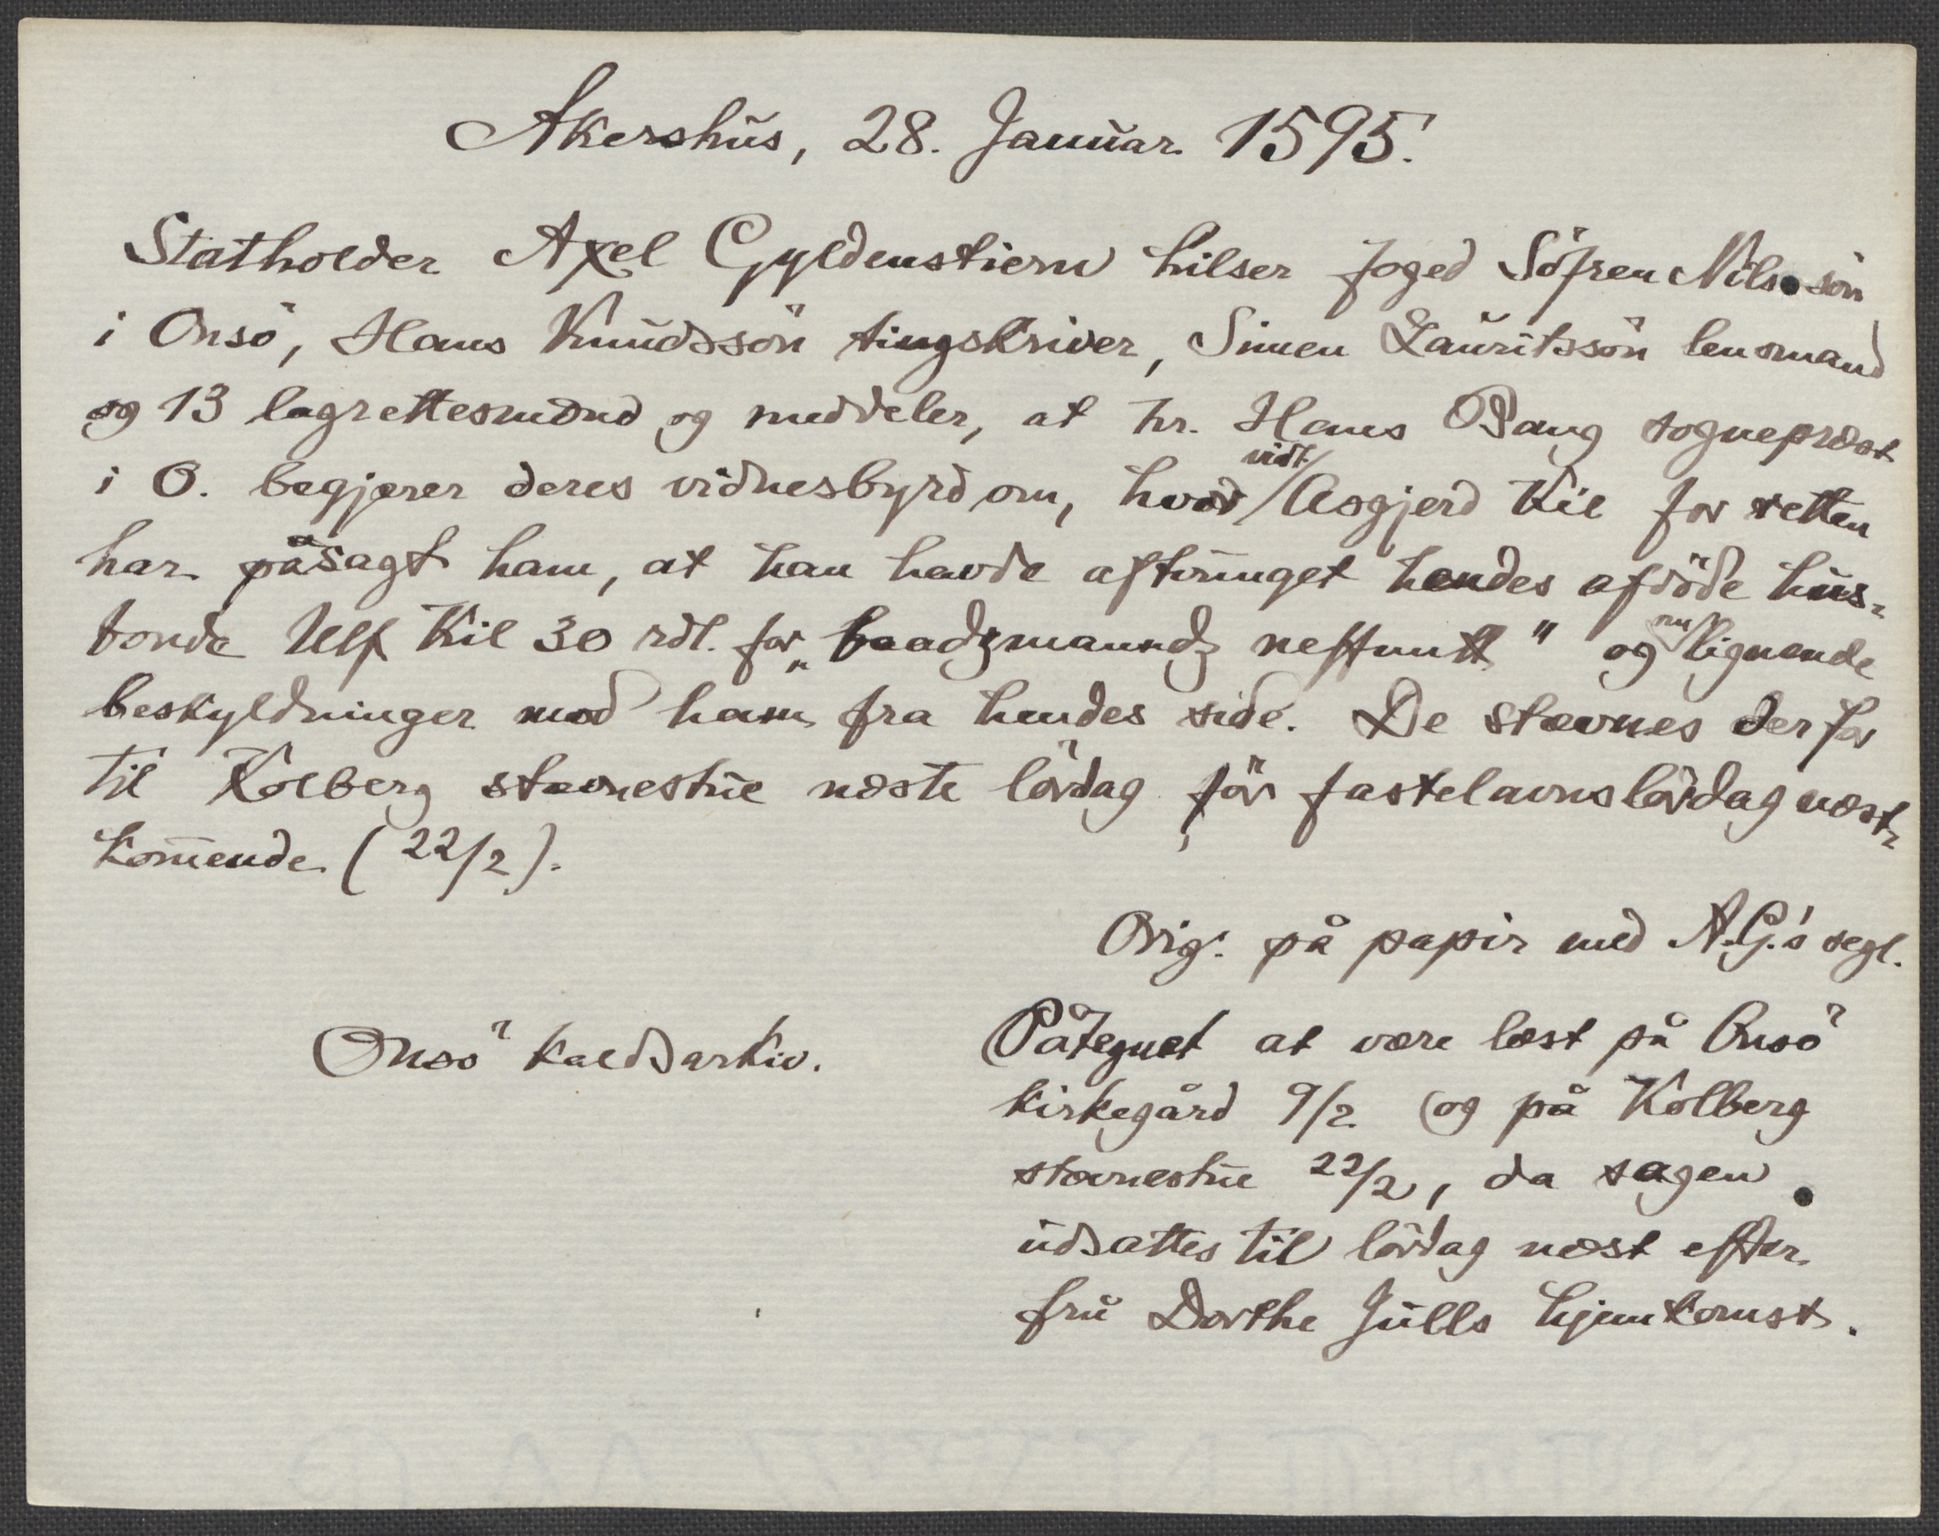 Akershus, 28. Januar 1595.
Statholder Axel Gyldenstiern hilser foged Söfren Nilssön
i Onsö, Hans Knudssön tingskriver, Simen Lauritssön lensmand
og 13 lagrettesmænd og meddeler, at hr. Hans Bang sognepræst
i O. begjærer deres vidnesbyrd om, hvad vidt. Asgjerd Kil for retten
har påsagt ham, at han havde aftvunget hendes afdöde hus-
bonde Ulf Kil 30 rdl. for „baadzmanndz neffnutt" og nu lignende
beskyldninger mod ham fra hendes side. De stævnes derfor
til Kolberg stævnestue næste lördag för fastelavnslördag næst-
kommende (22/2).
Orig. på papir med A.G.'s segl.
Onsö kaldsarkiv.
Påtegnet at være læst på Onsö
kirkegård 9/2 og på Kolberg
stævnestue 22/2, da sagen
udsattes til lördag næst efter
fru Dorthe Julls hjemkomst.